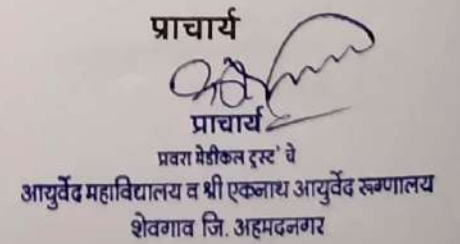 प्राचार्य
प्राचार्य
प्रवरा मेडीकल ट्रस्ट' चे
आयुर्वेद महाविद्यालय व श्री एकनाथ आयुर्वेद रुग्णालय
शेवगाव जि. अहमदनगर